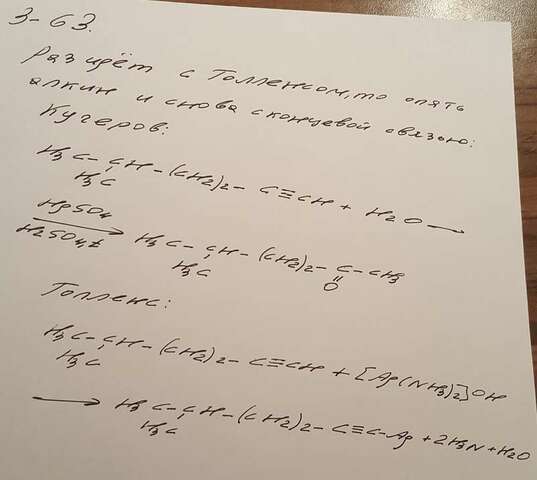 3-63.
Раз идёт с Толленсом, то опять
алкин и снова с концевой связью:
Кучеров:
H₃C-CH-(CH₂)₂-C≡CH + H₂O →
H₃C
HgSO₄
H₂SO₄, t → H₃C-CH-(CH₂)₂-C-CH₃
H₃C O
Толленс:
H₃C-CH-(CH₂)₂-C≡CH + [Ag(NH₃)₂]OH
H₃C
→ H₃C-CH-(CH₂)₂-C≡C-Ag + 2H₃N + H₂O
H₃C